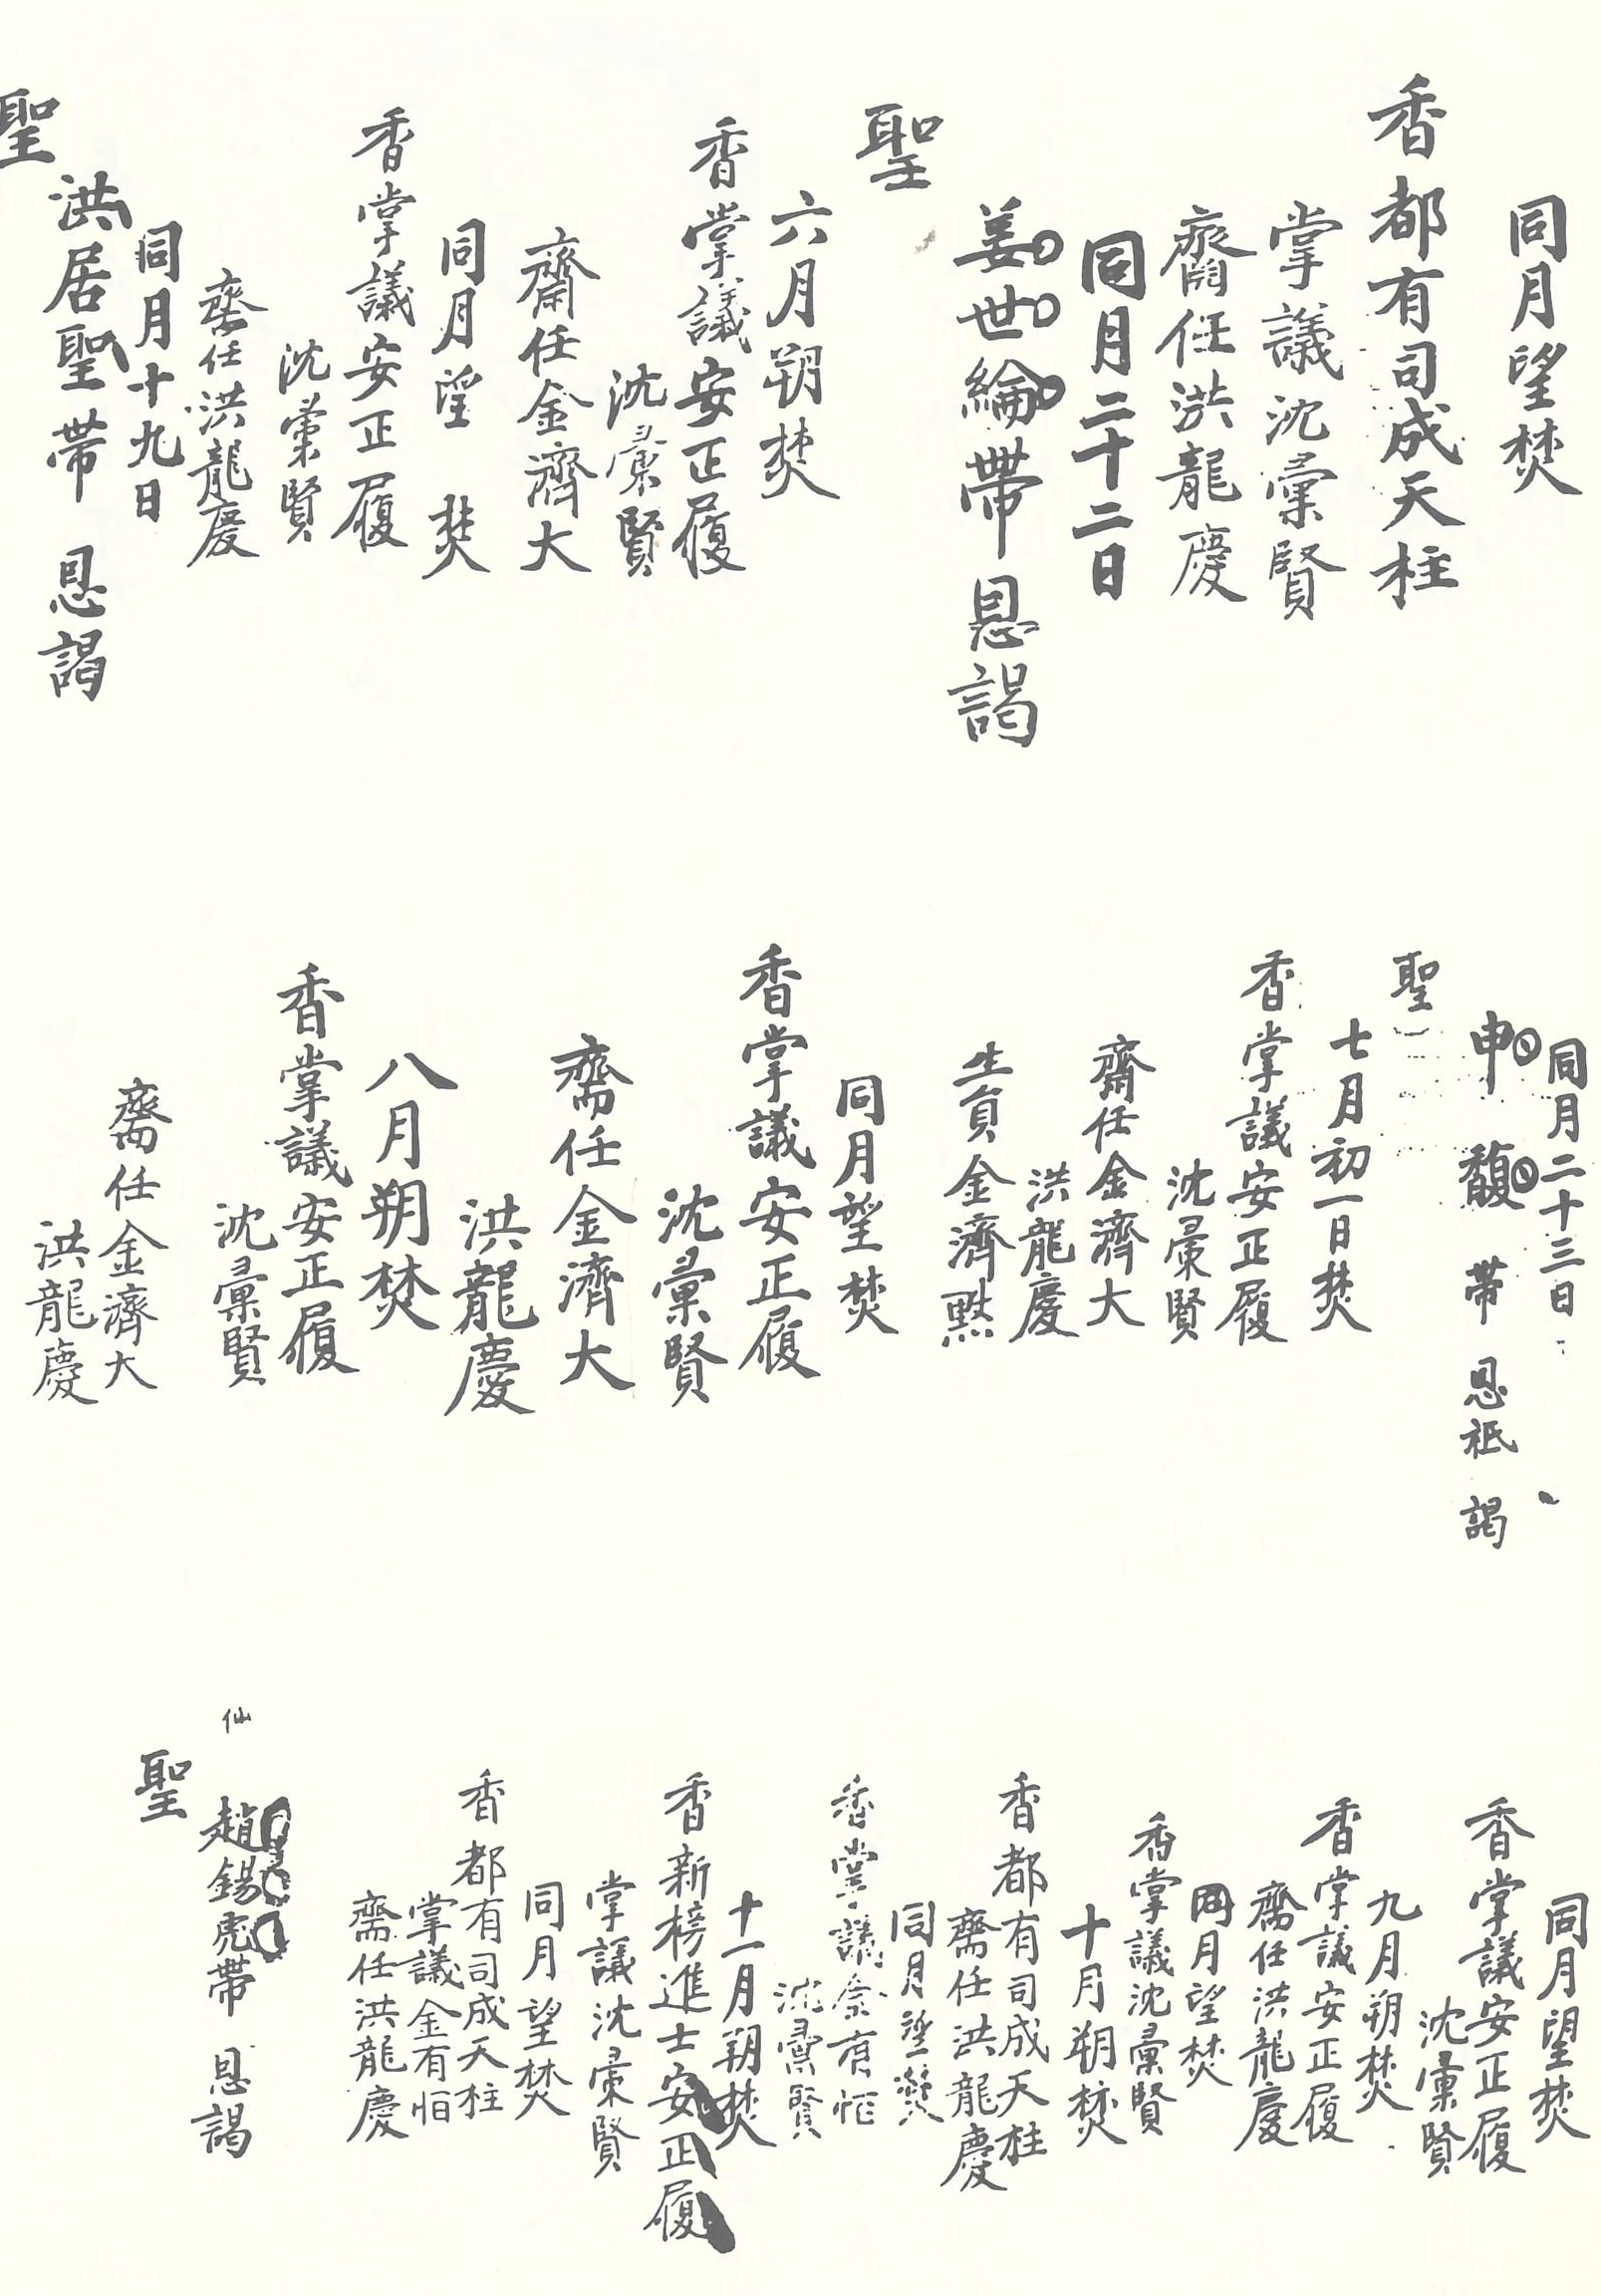 同月望焚
香都有司成天柱
掌議沈彙賢
齋任洪龍慶
同月二十二日
姜世綸帶恩謁
聖
六月朔焚
香掌議安正履
沈彙賢
齋任金濟大
同月望焚
香掌議安正履
沈彙賢
齋任洪龍慶
同月十九日
洪居聖帶恩謁
聖
同月二十三日
申馥帶恩祗謁
聖
七月初一日焚
香掌議安正履
沈彙賢
齋任金濟大
洪龍慶
生員金濟
同月望焚
香掌議安正履
沈彙賢
齋任金濟大
洪龍慶
八月朔焚
香掌議安正履
沈彙賢
齋任金濟大
洪龍慶
同月望焚
香掌議安正履
沈彙賢
九月朔焚
香掌議安正履
齋任洪龍慶
同月望焚
香掌議沈彙賢
十月朔焚
香都有司成天柱
齋任洪龍慶
同月望焚
香掌議金有恒
沈彙賢
十一月朔焚
香新榜進士安正履
掌議沈彙賢
同月望焚
香都有司成天柱
掌議金有恒
齋任洪龍慶
仙
趙錫帶恩謁
聖